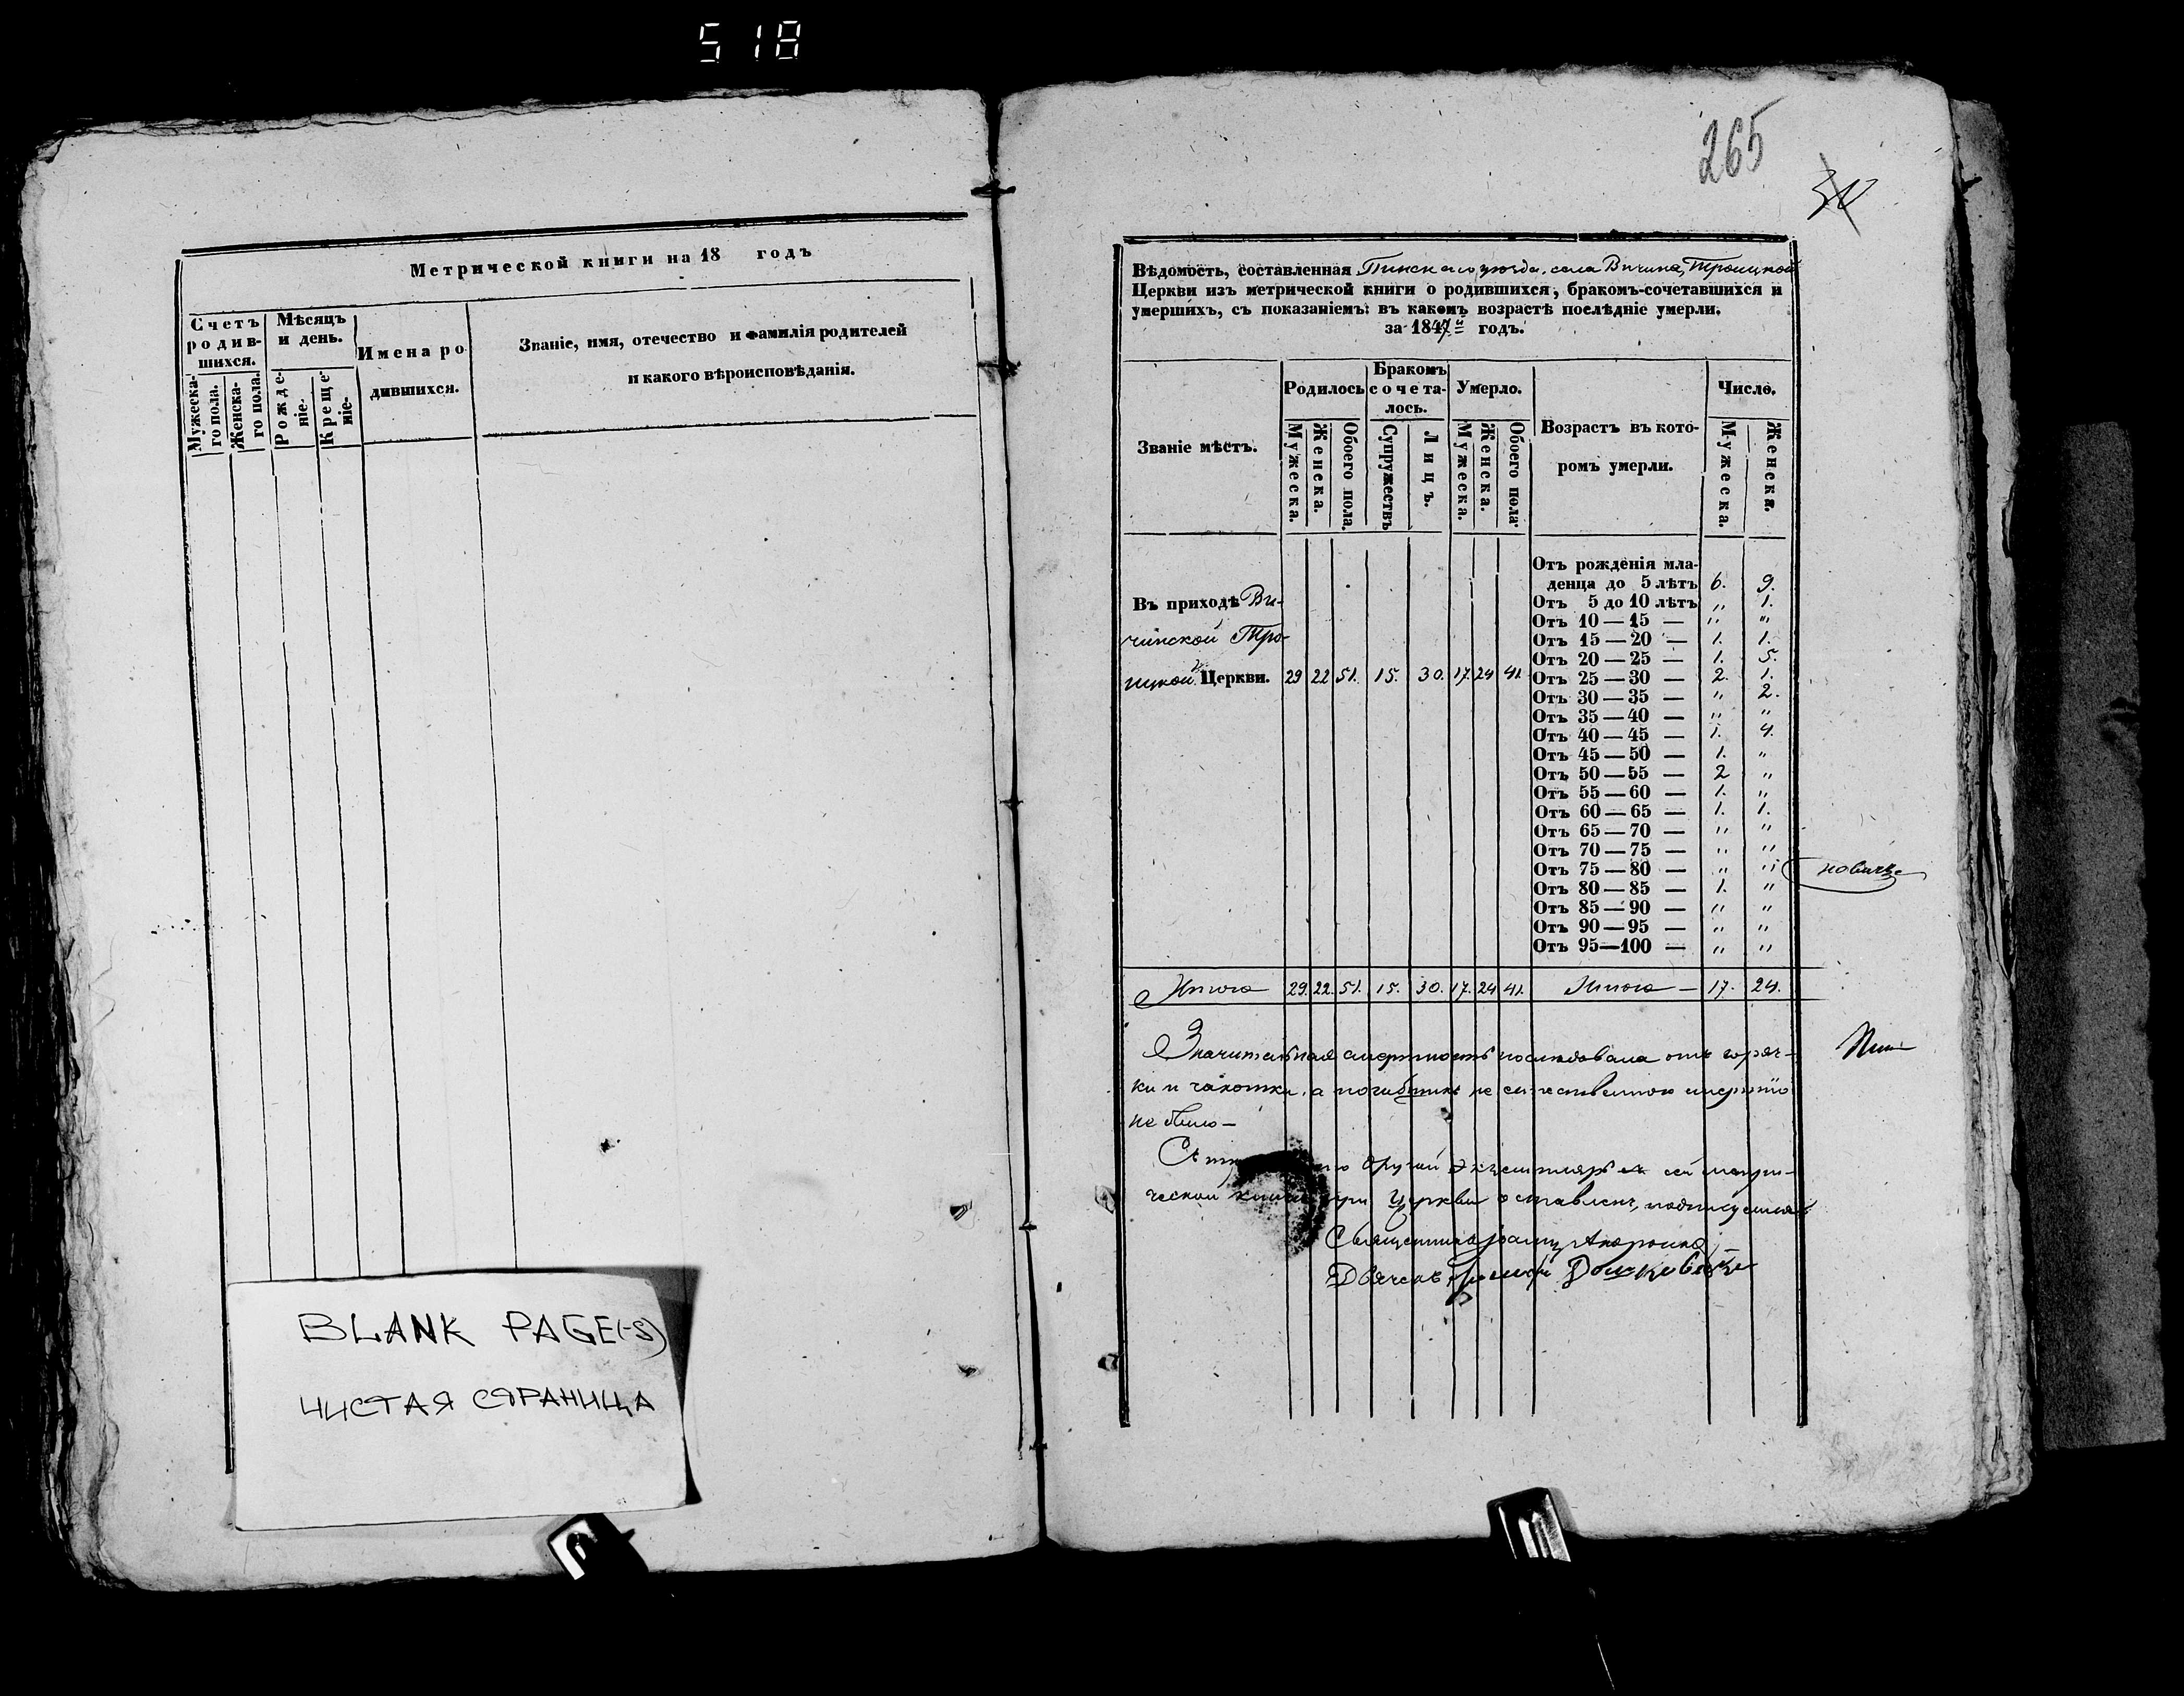 518
Метрической книги на 18 годъ
Счетъ родив-шихся.
Мѣсяцъ и день.
Имена ро-дившихся.
Званіе, имя, отечество и фамилія родителей
и какого вѣроисповѣданія.
Мужеска-го пола.
Женска-го пола.
Рожде-ніе.
Креще-ніе.
BLANK PAGE(-S)
ЧИСТАЯ СТРАНИЦА
265
Вѣдомость, составленная Пинскаго уѣзда, села Вичина, Троицкой
Церкви изъ метрической книги о родившихся, бракомъ-сочетавшихся и
умершихъ, съ показаніемъ: въ какомъ возрастѣ послѣдніе умерли.
за 1847й годъ.
Званіе мѣстъ.
Родилось
Бракомъ сочета-лось.
Умерло.
Возрастъ въ кото-
ромъ умерли.
Число.
Мужеска. Женска. Обоего пола. Супружествъ Лицъ. Мужеска. Женска. Обоего пола. Мужеска. Женска.
Отъ рожденія мла-
денца до 5 лѣтъ 6. 9.
Отъ 5 до 10 лѣтъ " 1.
Отъ 10 — 15 — " "
Отъ 15 — 20 — 1. 1.
Отъ 20 — 25 — 1. 5.
Отъ 25 — 30 — 2. 1.
Отъ 30 — 35 — " 2.
Отъ 35 — 40 — " "
Отъ 40 — 45 — 1. 4.
Отъ 45 — 50 — 1. "
Отъ 50 — 55 — 2 "
Отъ 55 — 60 — 1. "
Отъ 60 — 65 — 1. 1.
Отъ 65 — 70 — " "
Отъ 70 — 75 — " "
Отъ 75 — 80 — " "
Отъ 80 — 85 — 1. "
Отъ 85 — 90 — " "
Отъ 90 — 95 — " "
Отъ 95 — 100 — " "
Въ приходѣ Ви-
чинской Тро-
ицкой Церкви. 29 22 51. 15. 30. 17. 24 41.
Итого 29. 22. 51. 15. 30. 17. 24 41. Итого — 17. 24.
Значительная смертность послѣдовала отъ горяч-
ки и чахотки, а погибшихъ не естественною смертію
не было —
другой экземпляръ сей метри-
ческой книги при Церкви оставленъ, подписуемся
Священникъ
Дьячекъ